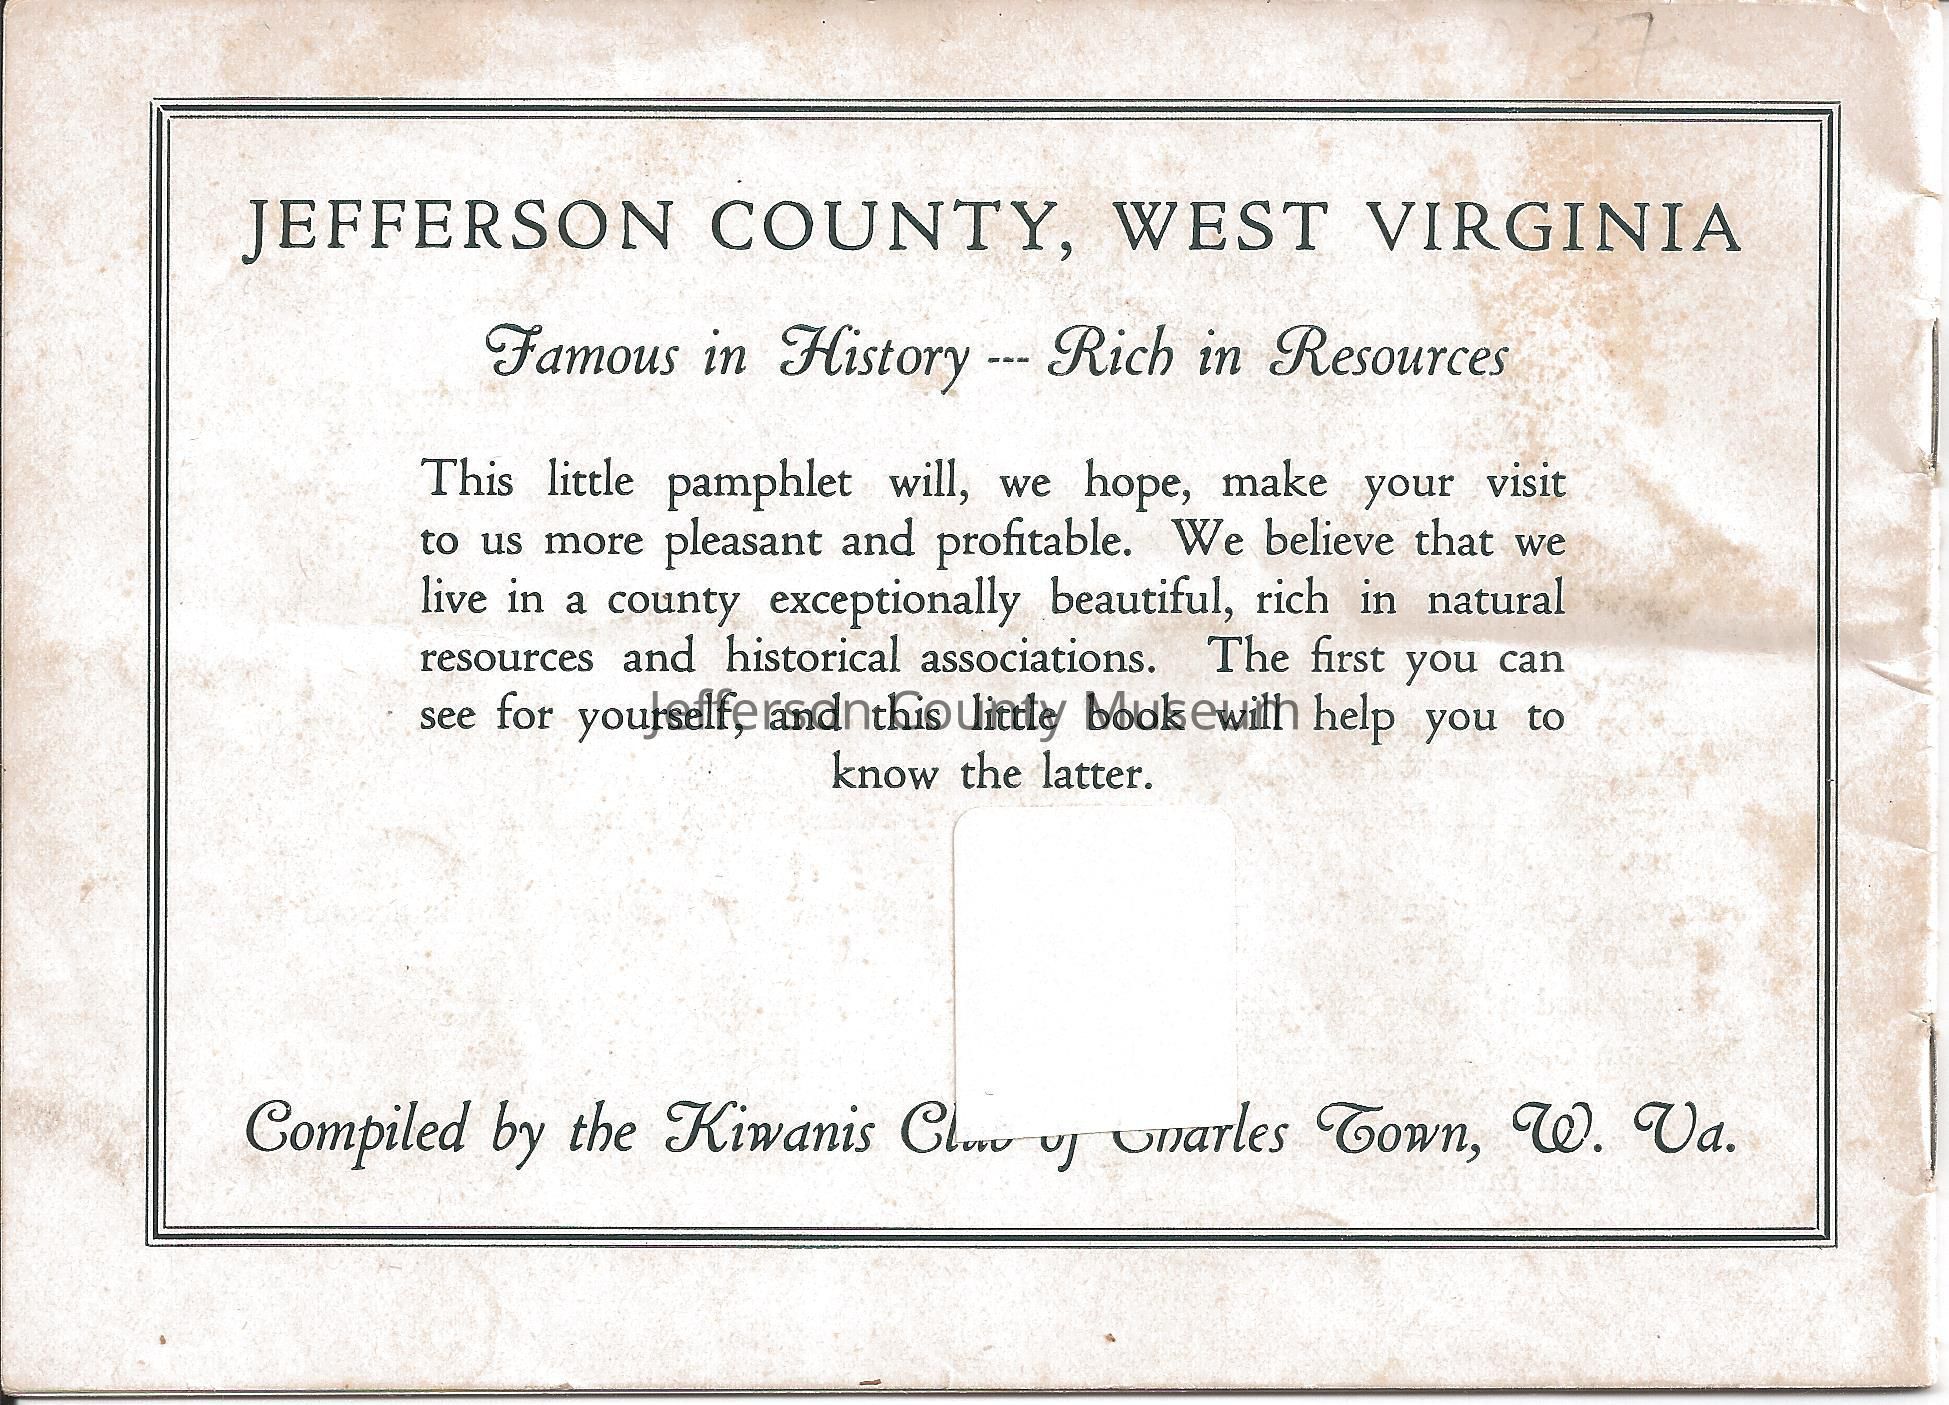 37
JEFFERSON COUNTY, WEST VIRGINIA
Famous in History --- Rich in Resources
This little pamphlet will, we hope, make your visit
to us more pleasant and profitable. We believe that we
live in a county exceptionally beautiful, rich in natural
resources and historical associations. The first you can
see for yourself, and this little book will help you to
Jefferson County Museum
know the latter.
Compiled by the Kiwanis Club of Charles Town, W. Va.